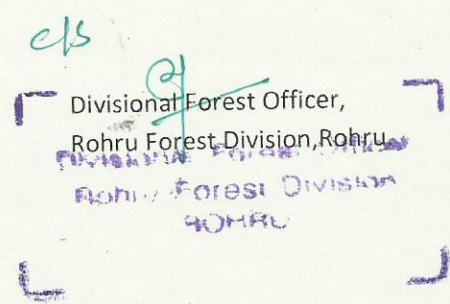 c/s
Divisional Forest Officer,
Rohru Forest Division,Rohru
Divisional Forest Officer
Rohru Forest Division
ROHRU